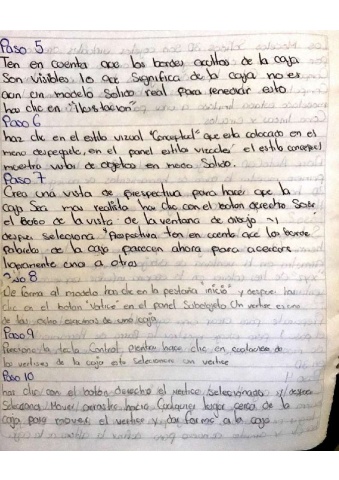 Paso 5
Ten en cuenta que los bordes ocultos de la caja
Son visibles lo que significa de la caja no es
aun un modelo solido real para remediar esto
haz clic en "ilustracion"
Paso 6
haz clic en el estilo vizual "Conceptual" que esta colocado en el
menu despegable, en el panel estilos vizuales el estilo conceptual
muestra objetos en modo Solido.
Paso 7
Crea una vista de prespectiva para hacer que la
caja Sea mas realista haz clic con el boton derecho Sobre
el de la vista de la ventana de abajo y
despues selecciona "Prospectiva ten en cuenta que los bordes
de la caja parecen ahora para acercarse
a otros
Paso 8
De forma al modelo haz clic en la pestaña inicio" y despues haz
clic en el boton "Vertice" en el panel Subobjeto Un vertice es una
de las ocho esquinas de una caja
Paso 9
Presiona la tecla Control mientras hace clic en cualquiera de
los vertices de la caja esto selecciona un vertice
Paso 10
haz clic con el botón derecho el vertice Seleccionado y despues
Selecciona Mover arrastra hacia Cualquier lugar cerca de la
caja para mover el vertice y dar forma a la caja